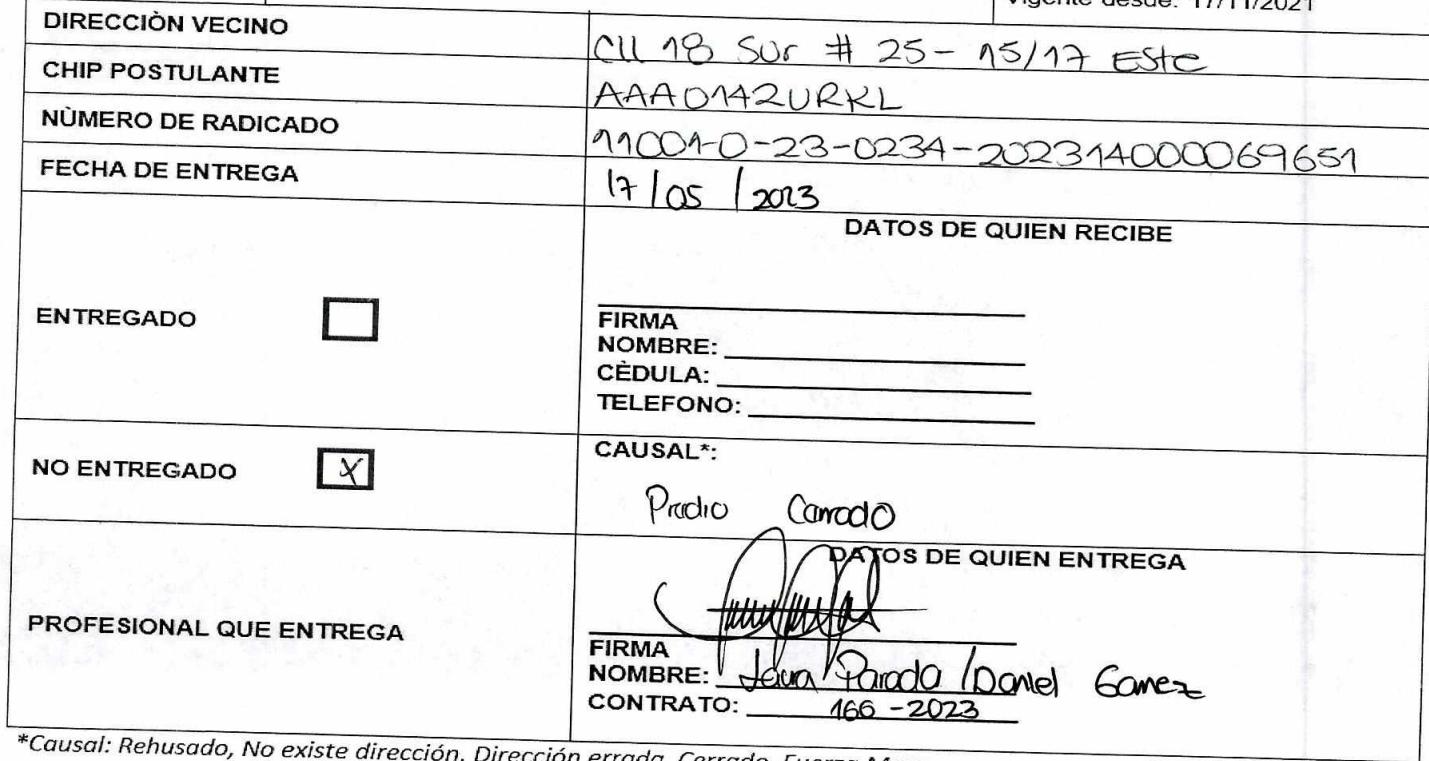 Vigente desde: 17/11/2021
DIRECCIÒN VECINO CLL 18 Sur # 25 - 15/17 Este
CHIP POSTULANTE AAA0142URKL
NÙMERO DE RADICADO 11001-0-23-0234-202314000069651
FECHA DE ENTREGA 17/05/2023
DATOS DE QUIEN RECIBE
ENTREGADO
FIRMA
NOMBRE:
CÈDULA:
TELEFONO:
NO ENTREGADO X
CAUSAL*:
Predio Cerrado
DATOS DE QUIEN ENTREGA
PROFESIONAL QUE ENTREGA
FIRMA
NOMBRE: Laura Parada / Daniel Gamez
CONTRATO: 166 - 2023
*Causal: Rehusado, No existe dirección, Dirección errada, Cerrado, Fuerza